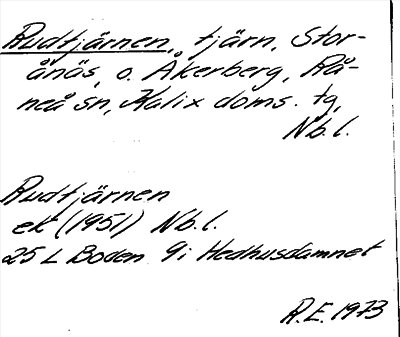 Rudtjärnen, tjärn, Stor-
ånäs, o. Åkerberg, Rå-
neå sn, Kalix doms. tg,
Nb.l.
Rudtjärnen
ek (1951) Nb.l.
25 L Boden 9i Hedhusdamnet
R.E. 1973